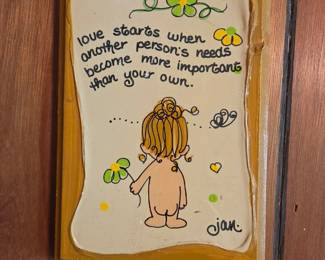 love starts when
another person's needs
become more important
than your own.
jan.